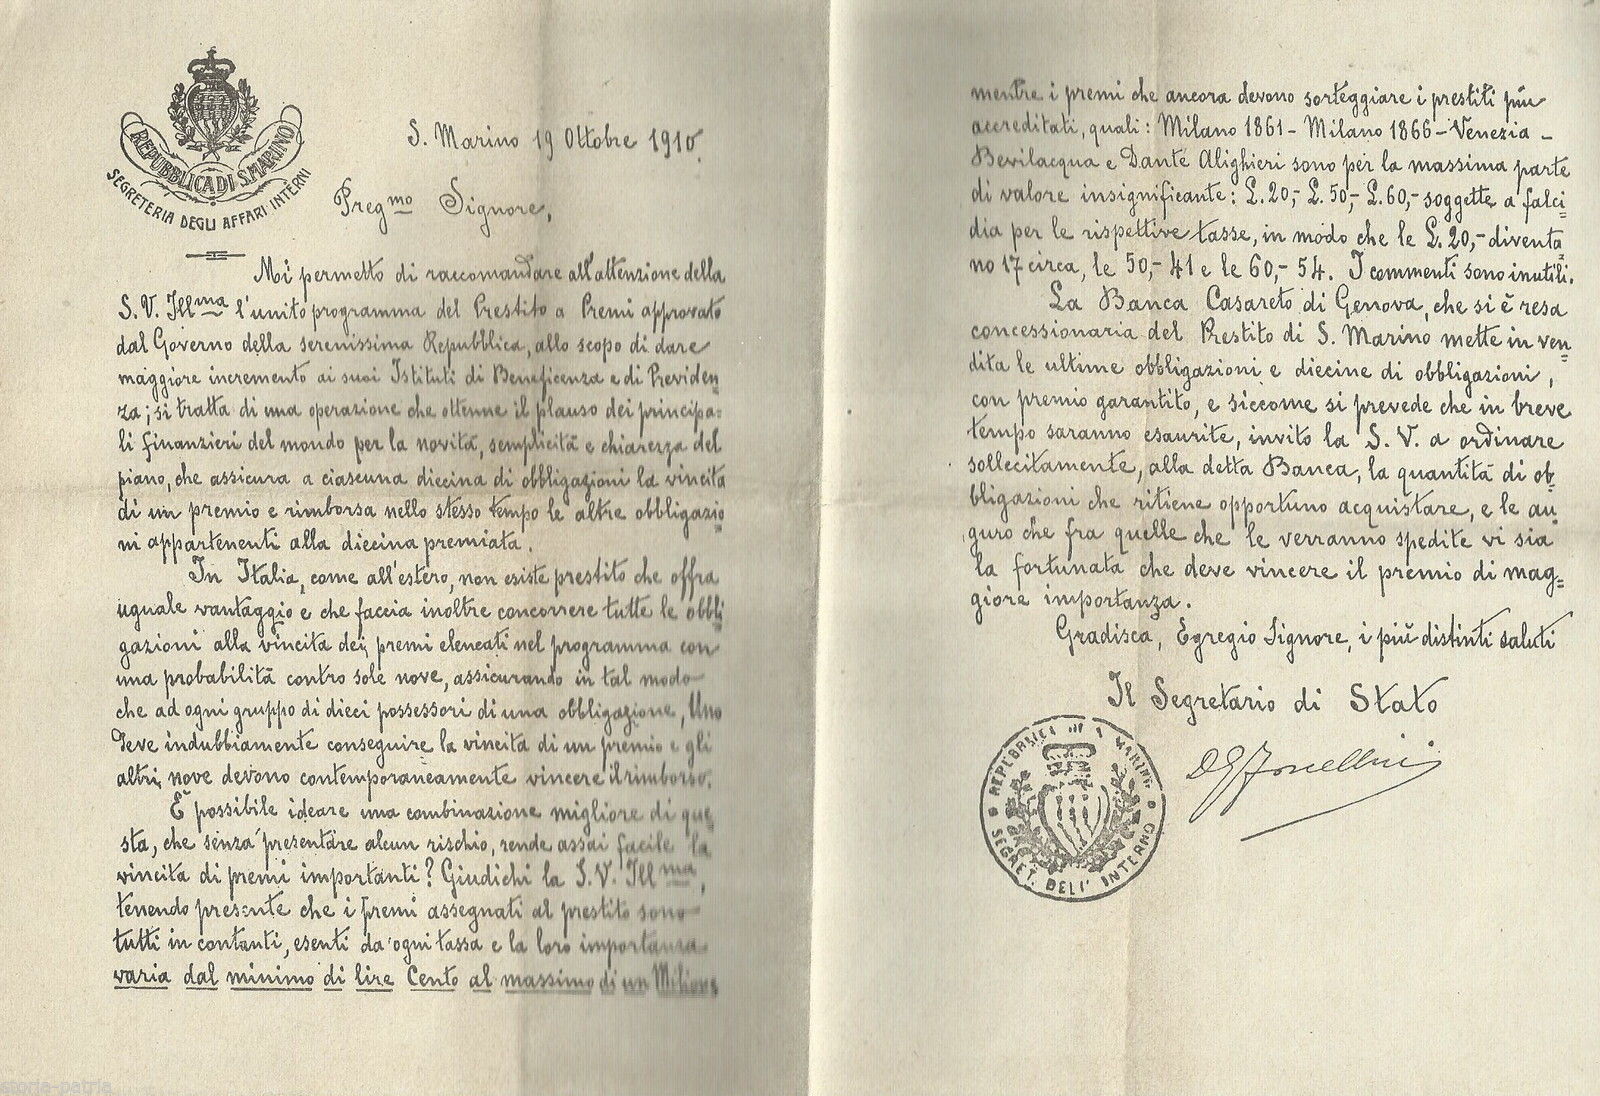 REPUBBLICA DI S. MARINO
SEGRETERIA DEGLI AFFARI INTERNI
S. Marino 19 Ottobre 1910.
Preg.mo Signore,
Mi permetto di raccomandare all'attenzione della
S. V. Ill.ma l'unito programma del Prestito a Premi approvato
dal Governo della serenissima Repubblica, allo scopo di dare
maggiore incremento ai suoi Istituti di Beneficenza e di Previden=
za; si tratta di una operazione che ottenne il plauso dei principa=
li finanzieri del mondo per la novità, semplicità e chiarezza del
piano, che assicura a ciascuna diecina di obbligazioni la vincita
di un premio e rimborsa nello stesso tempo le altre obbligazio=
ni appartenenti alla diecina premiata.
In Italia, come all'estero, non esiste prestito che offra
uguale vantaggio e che faccia inoltre concorrere tutte le obbli=
gazioni alla vincita dei premi elencati nel programma con
una probabilità contro sole nove, assicurando in tal modo
che ad ogni gruppo di dieci possessori di una obbligazione, Uno
deve indubbiamente conseguire la vincita di un premio e gli
altri nove devono contemporaneamente vincere il rimborso.
È possibile ideare una combinazione migliore di que=
sta, che senza presentare alcun rischio, rende assai facile la
vincita di premi importanti? Giudichi la S. V. Ill.ma,
tenendo presente che i premi assegnati al prestito sono
tutti in contanti, esenti da ogni tassa e la loro importanza
varia dal minimo di lire Cento al massimo di un Milione
mentre i premi che ancora devono sorteggiare i prestiti più
accreditati, quali: Milano 1861 - Milano 1866 - Venezia -
Bevilacqua e Dante Alighieri sono per la massima parte
di valore insignificante: L. 20,- L. 50,- L. 60,- soggette a falci=
dia per le rispettive tasse, in modo che le L. 20,- diventa=
no 17 circa, le 50,- 41 e le 60,- 54. I commenti sono inutili.
La Banca Casareto di Genova, che si è resa
concessionaria del Prestito di S. Marino mette in ven=
dita le ultime obbligazioni e diecine di obbligazioni,
con premio garantito, e siccome si prevede che in breve
tempo saranno esaurite, invito la S. V. a ordinare
sollecitamente, alla detta Banca, la quantità di ob=
bligazioni che ritiene opportuno acquistare, e le au=
guro che fra quelle che le verranno spedite vi sia
la fortunata che deve vincere il premio di mag=
giore importanza.
Gradisca, Egregio Signore, i più distinti saluti
Il Segretario di Stato
REPUBBLICA DI S. MARINO
SEGRET. DELL' INTERNO
storia-patria